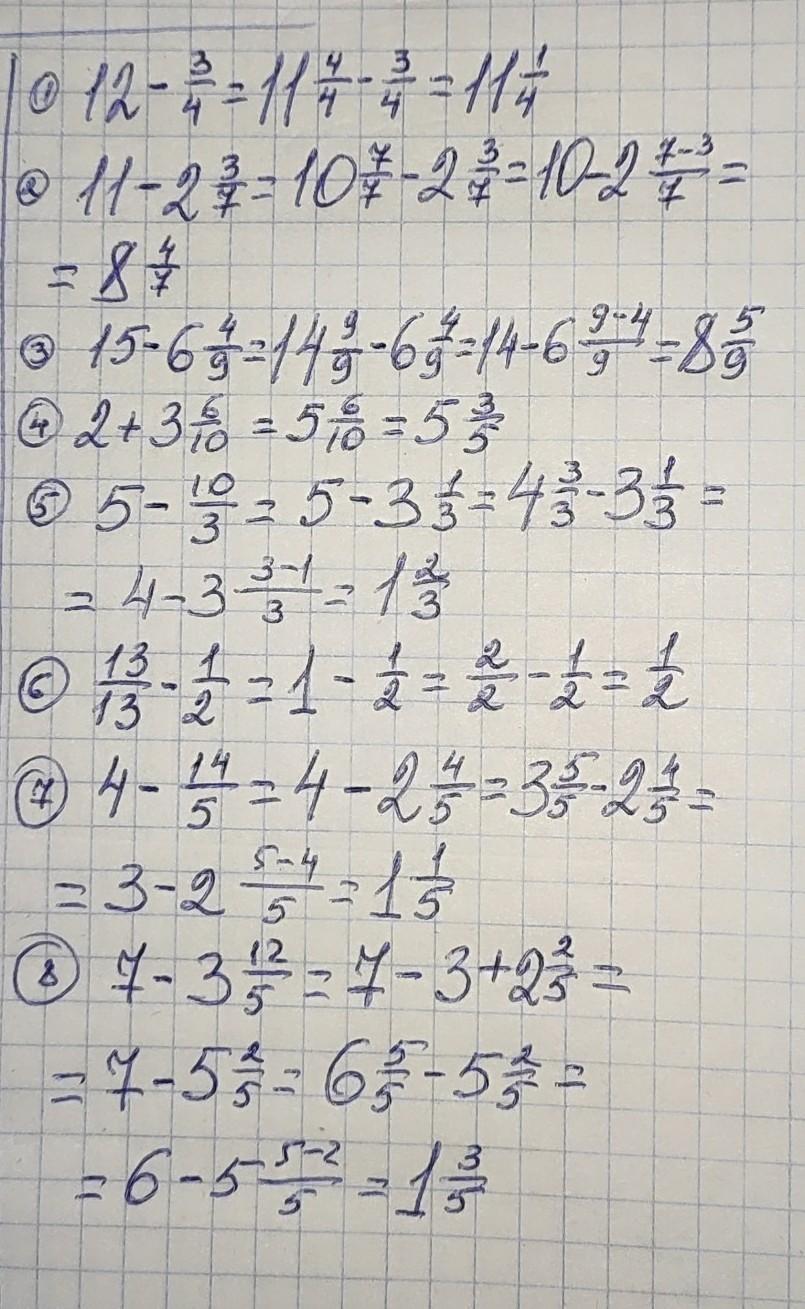 ① 12 - 3/4 = 11 4/4 - 3/4 = 11 1/4
② 11 - 2 3/7 = 10 7/7 - 2 3/7 = 10 - 2 (7-3)/7 =
= 8 4/7
③ 15 - 6 4/9 = 14 9/9 - 6 4/9 = 14 - 6 (9-4)/9 = 8 5/9
④ 2 + 3 6/10 = 5 6/10 = 5 3/5
⑤ 5 - 10/3 = 5 - 3 1/3 = 4 3/3 - 3 1/3 =
= 4 - 3 (3-1)/3 = 1 2/3
⑥ 13/13 - 1/2 = 1 - 1/2 = 2/2 - 1/2 = 1/2
⑦ 4 - 14/5 = 4 - 2 4/5 = 3 5/5 - 2 4/5 =
= 3 - 2 (5-4)/5 = 1 1/5
⑧ 7 - 3 12/5 = 7 - 3 + 2 2/5 =
= 7 - 5 2/5 = 6 5/5 - 5 2/5 =
= 6 - 5 (5-2)/5 = 1 3/5